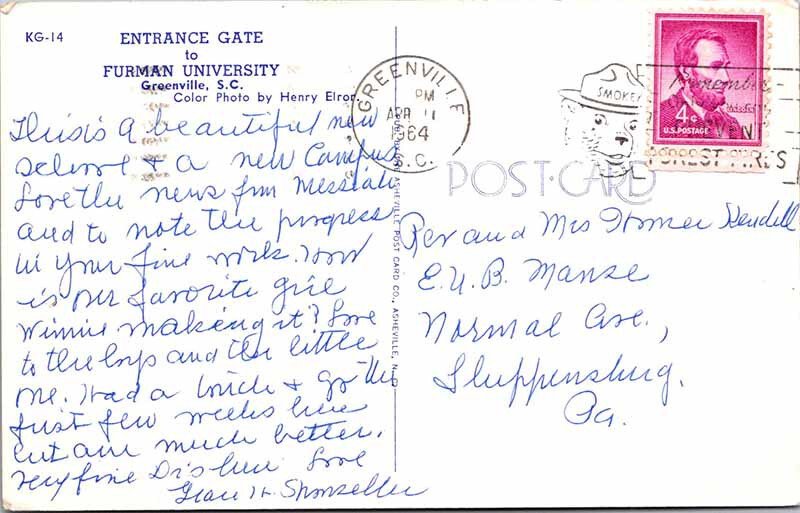 KG-14
ENTRANCE GATE
to
FURMAN UNIVERSITY
Greenville, S.C.
Color Photo by Henry Elrod
This is a beautiful new
school & a new Campus
Love the news from Messiah
and to note the progress
in your fine work. How
is our favorite girl
Winnie making it? Love
to the boys and the little
one. Had a &
just few weeks here
but am much better.
very fine Drs here Love
Grace H.
PUB. BY ASHEVILLE POST CARD CO., ASHEVILLE, N.C.
GREENVILLE
PM
APR 11
1964
S.C.
SMOKEY
Remember-
PREVENT
FOREST FIRES
4¢
U.S. POSTAGE
POST CARD
Rev and Mrs Homer Kendall
E.U.B. Manse
Normal Ave.,
Shippensburg,
Pa.